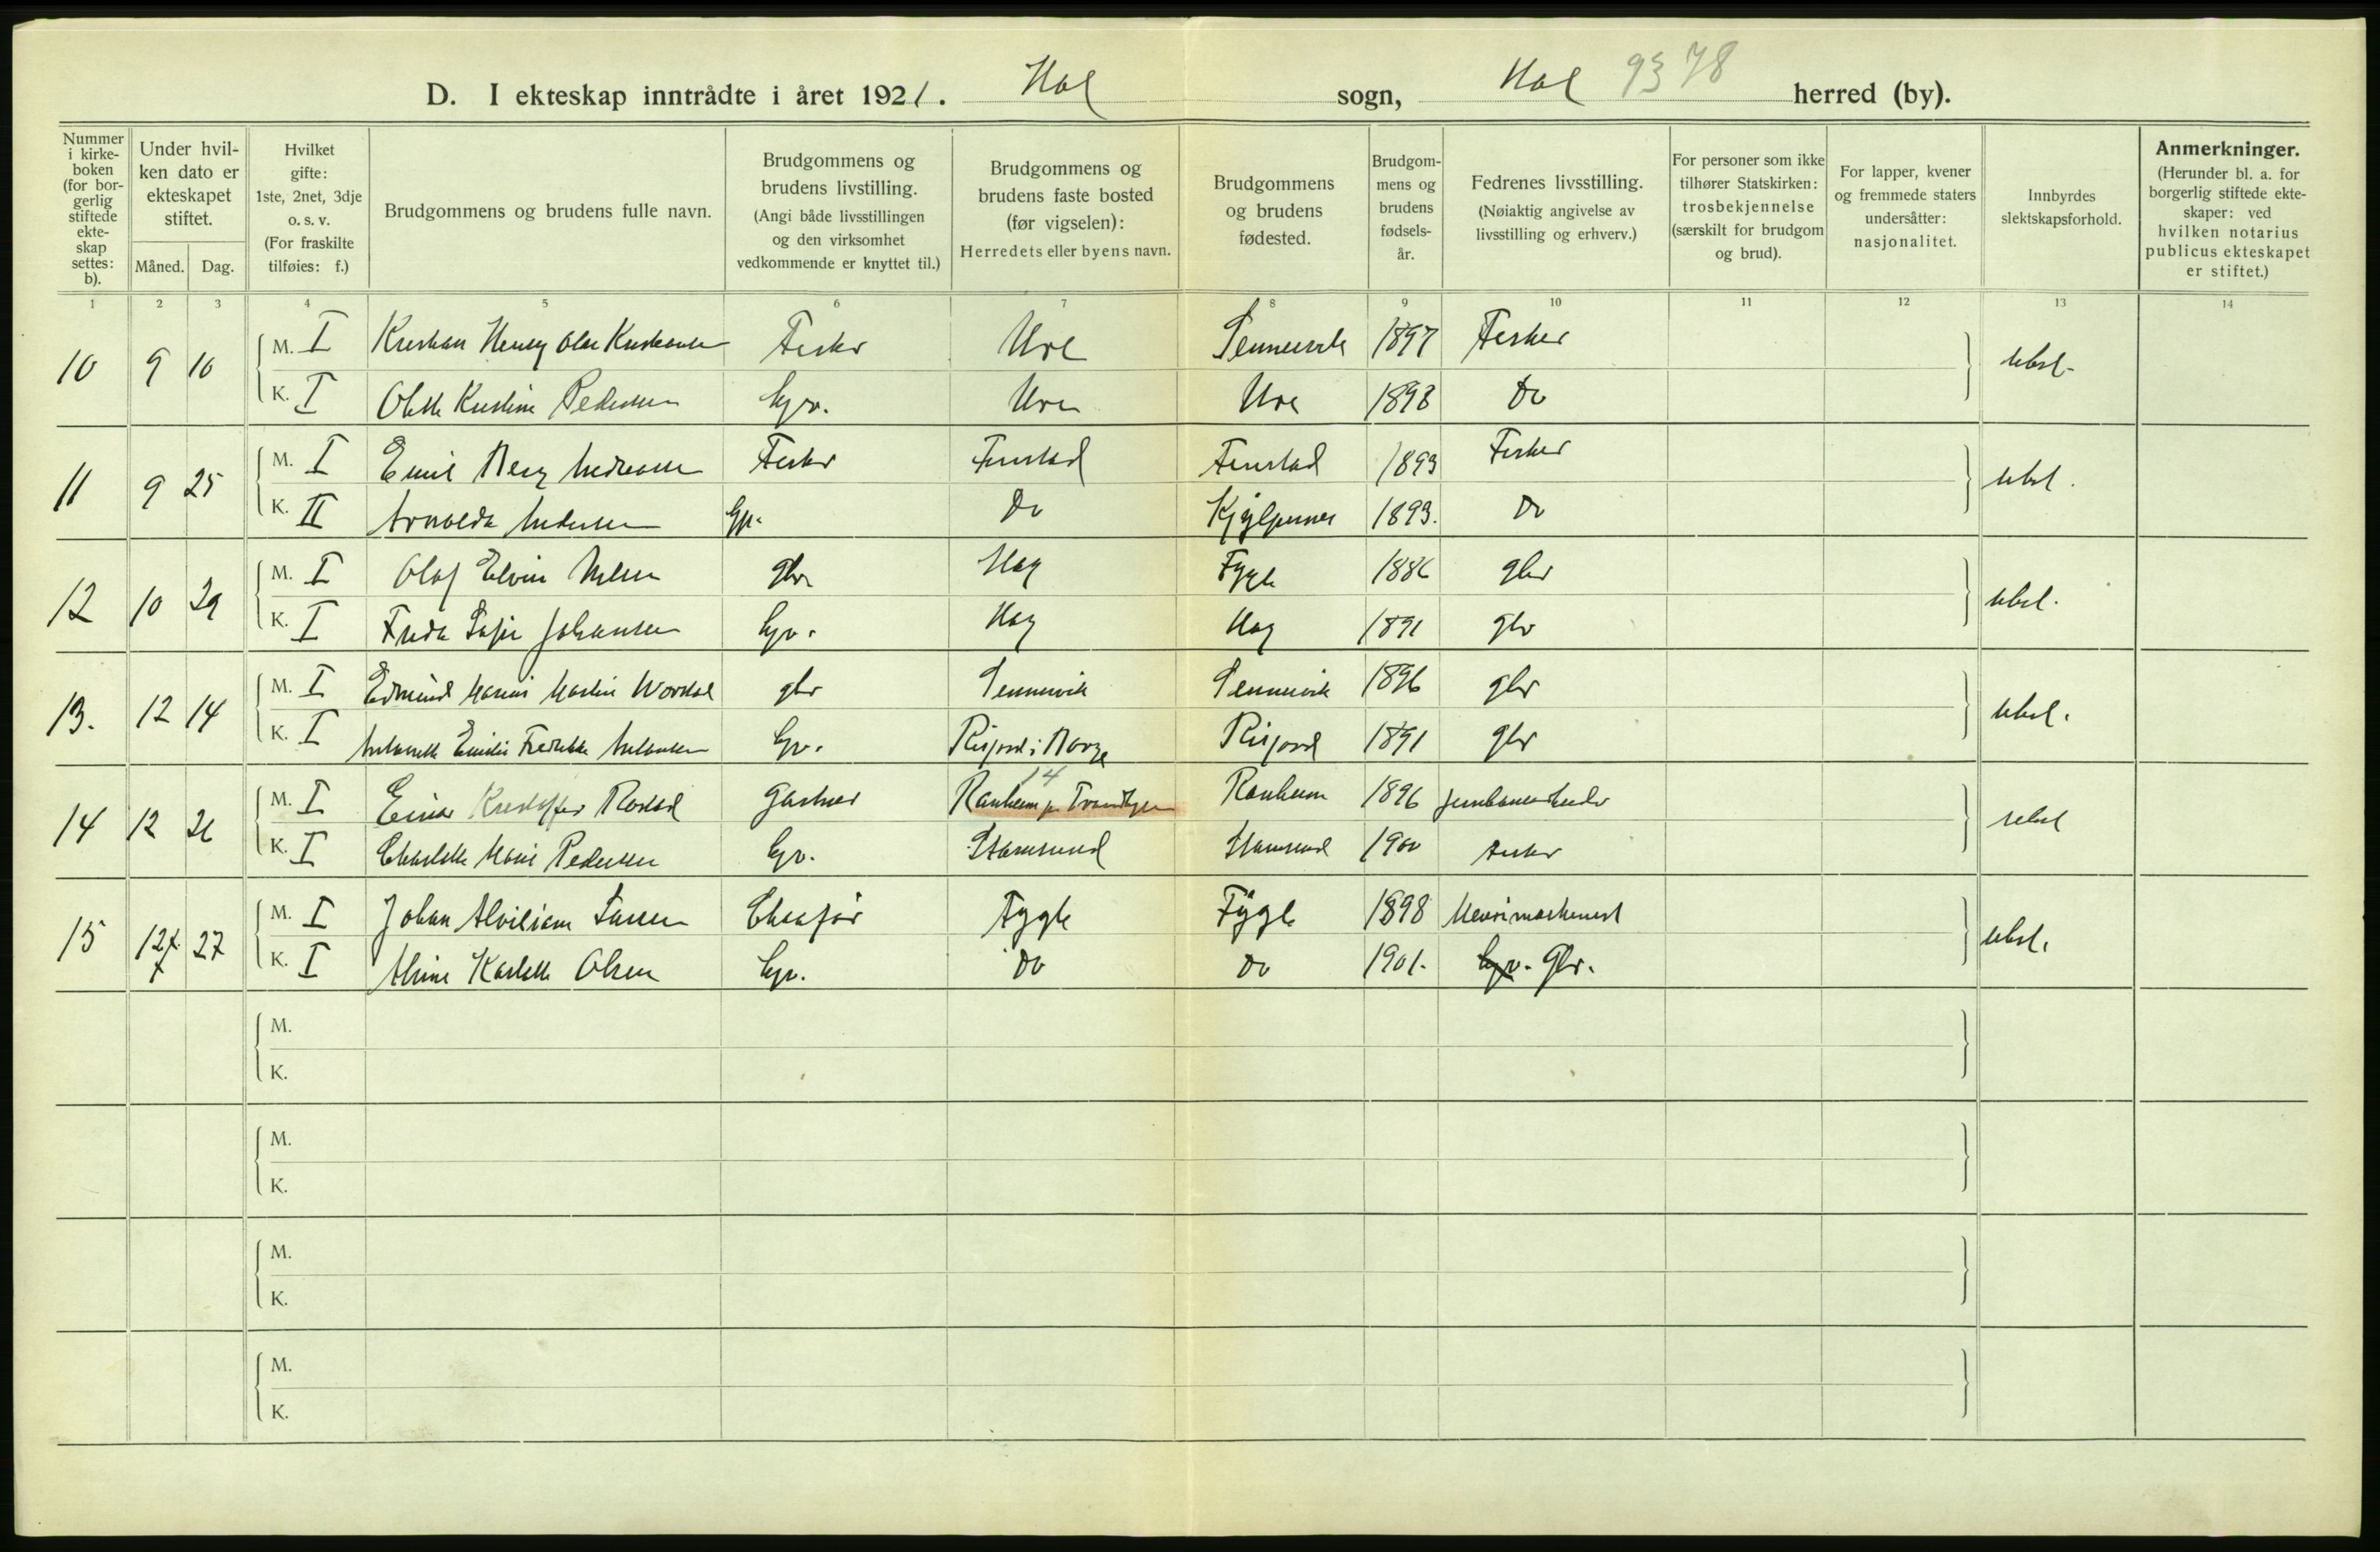 D. I ekteskap inntrådte i året 1921. Hol sogn, Hol 93 78 herred (by).
Nummer i kirkeboken (for borgerlig stiftede ekteskap settes: b).
Under hvilken dato er ekteskapet stiftet.
Måned. Dag.
Hvilket gifte: 1ste, 2net, 3dje o. s. v. (For fraskilte tilføies: f.)
Brudgommens og brudens fulle navn.
Brudgommens og brudens livstilling. (Angi både livsstillingen og den virksomhet vedkommende er knyttet til.)
Brudgommens og brudens faste bosted (før vigselen): Herredets eller byens navn.
Brudgommens og brudens fødested.
Brudgommens og brudens fødselsår.
Fedrenes livsstilling. (Nøiaktig angivelse av livsstilling og erhverv.)
For personer som ikke tilhører Statskirken: trosbekjennelse (særskilt for brudgom og brud).
For lapper, kvener og fremmede staters undersåtter: nasjonalitet.
Innbyrdes slektskapsforhold.
Anmerkninger. (Herunder bl. a. for borgerlig stiftede ekteskaper: ved hvilken notarius publicus ekteskapet er stiftet.)
1 2 3 4 5 6 7 8 9 10 11 12 13 14
10 9 10 M. I Kristian Henry Olai Kristiansen Fisker Ure Sennesvik 1897 Fisker ubsl.
K. I Olette Kristine Pedersen Ure Ure 1893 Do
11 9 25 M. I Emil Berg Andreassen Fisker Finstad Finstad 1893 Fisker ubsl.
K. II Arnolda Andersen Do 1893. Do
12 10 29 M. I Olaf Elvin Nilsen gbr Hag Fygle 1886 gbr ubsl.
K. I Frida Sofie Johansen Hag Hag 1891 gbr
13. 12 14 M. I Edmund Marius Martin gbr Sennesvik Sennesvik 1896 gbr ubsl.
K. I Antonette Emilie Fredrikke Antonsen Risjord i Borge Risjord 1891 gbr
14 12 26 M. I Einar Kristoffer Rostad Gartner 14 Ranheim Ranheim 1896 ubsl
K. I Charlotte Marie Pedersen Stamsund Stamsund 1900 Fisker
15 12 27 M. I Johan Alviliam Larsen Chaafør Fygle Fygle 1898 Meierimaskinist ubsl.
K. I Alvine Karlotte Olsen Do Do 1901. Gbr.
M.
K.
M.
K.
M.
K.
M.
K.